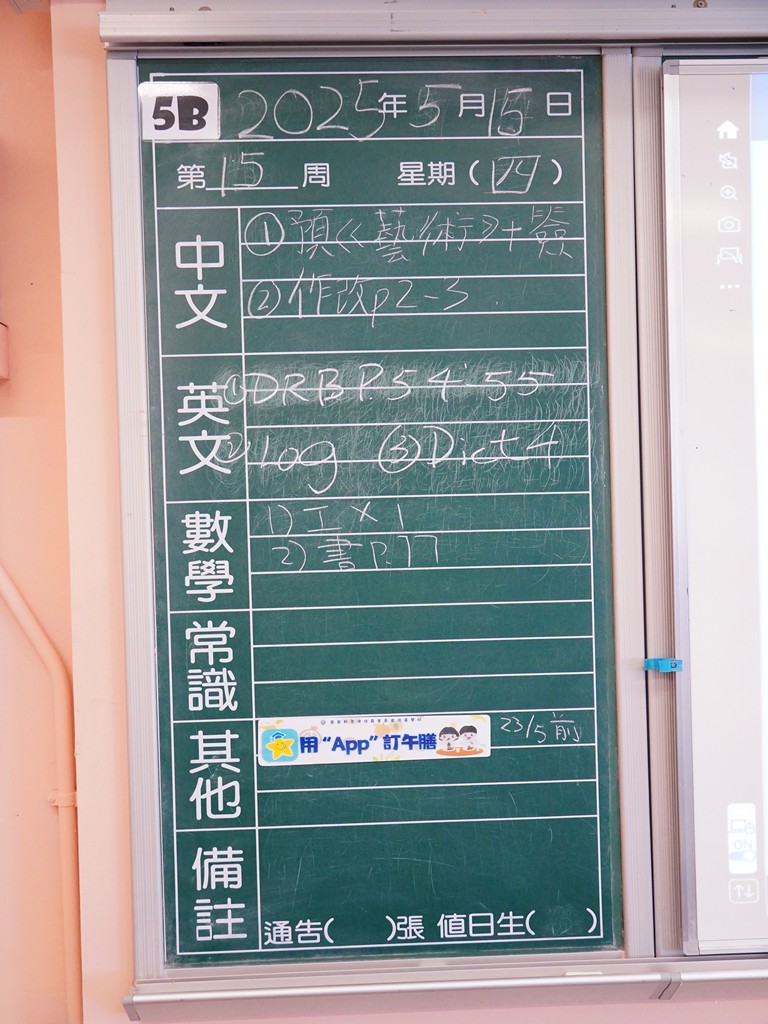 5B 2025年5月15日
第15周 星期(四)
中文
①預《藝術》+簽
②作改p2-3.
英文
①DRB P.54-55
②Log ③Dict 4
數學
1)工×1
2)書P.77
常識
其他
用“App”訂午膳 23/5前
備註
通告( )張 值日生( )
ON